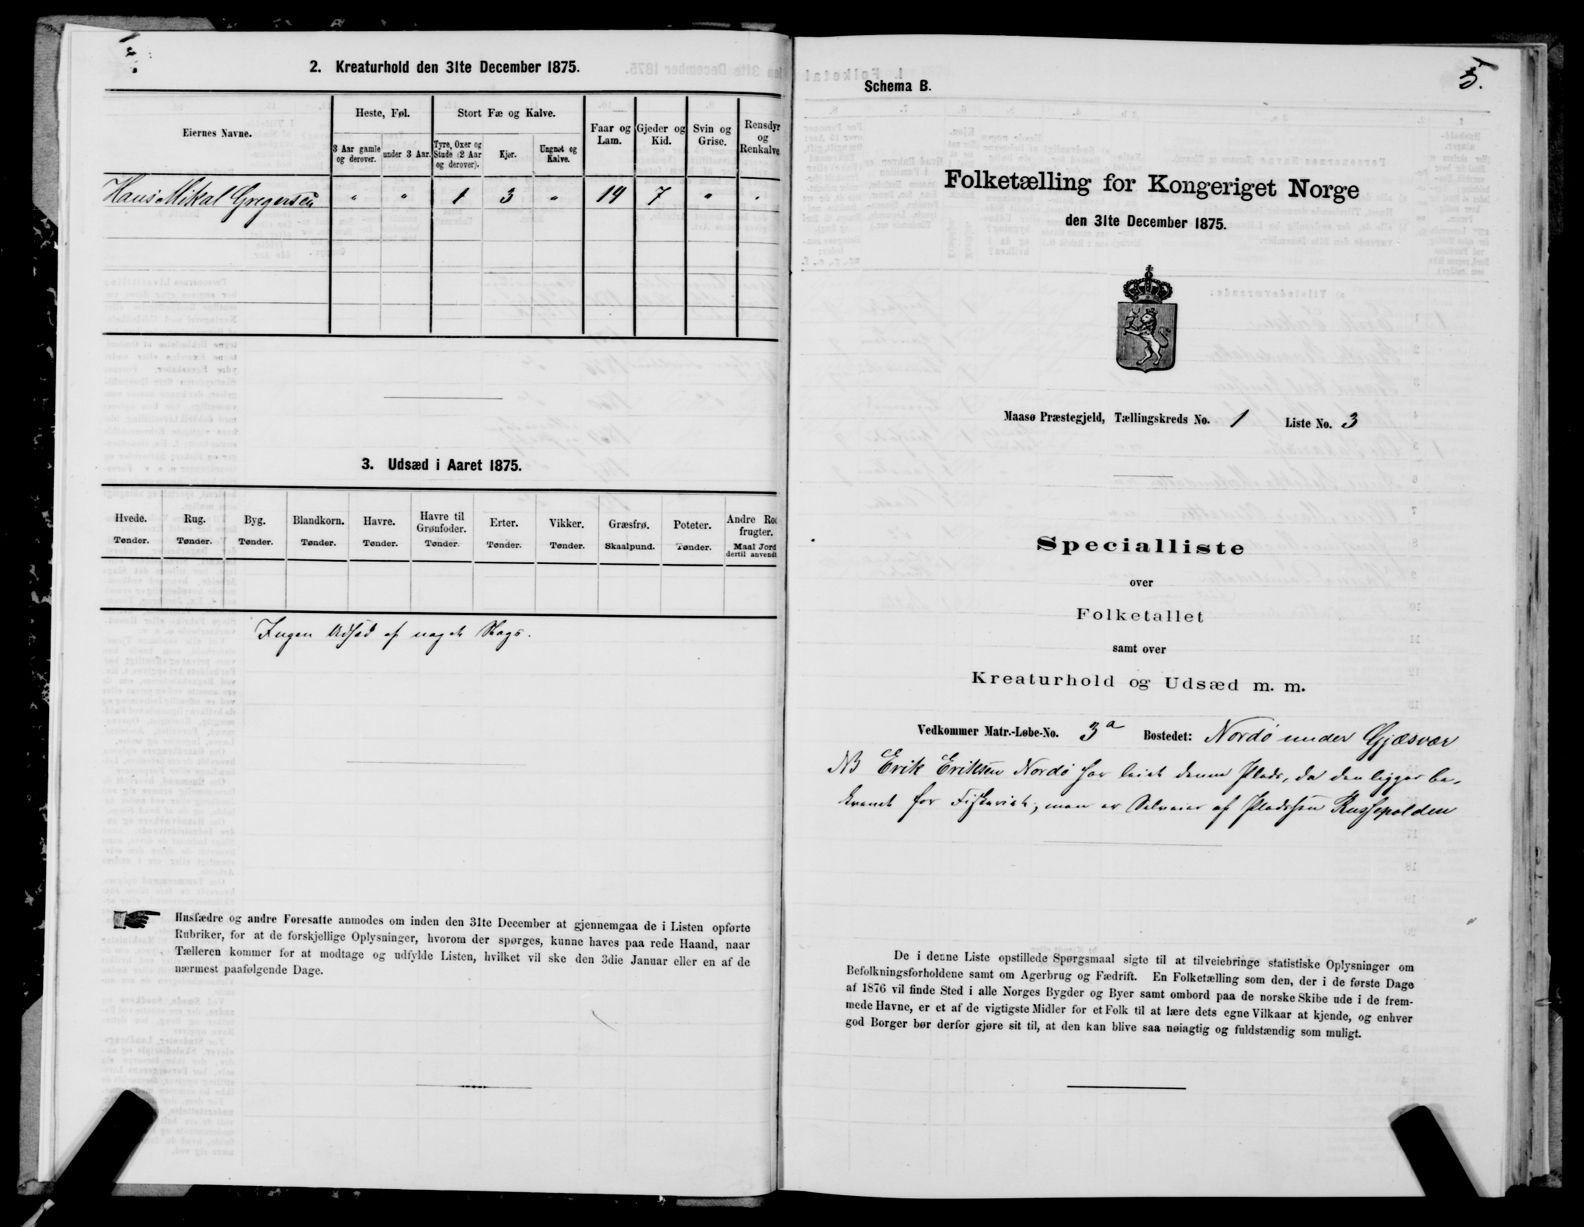 2. Kreaturhold den 31te December 1875.
Eiernes Navne.
Heste, Føl.
3 Aar gamle og derover.
under 3 Aar.
Stort Fæ og Kalve.
Tyre, Oxer og Stude (2 Aar og derover).
Kjør.
Ungnøt og Kalve.
Faar og Lam.
Gjeder og Kid.
Svin og Grise.
Rensdyr og Renkalve
Hans Mikal Gregersen " " 1 3 " 14 7 " "
3. Udsæd i Aaret 1875.
Hvede. Tønder.
Rug. Tønder.
Byg. Tønder.
Blandkorn. Tønder.
Havre. Tønder.
Havre til Grønfoder. Tønder.
Erter. Tønder.
Vikker. Tønder.
Græsfrø. Skaalpund.
Poteter. Tønder.
Andre Rod frugter. Maal Jord dertil anvendt
Ingen Udsæd af noget Slags.
Husfædre og andre Foresatte anmodes om inden den 31te December at gjennemgaa de i Listen opførte
Rubriker, for at de forskjellige Oplysninger, hvorom der spørges, kunne haves paa rede Haand, naar
Tælleren kommer for at modtage og udfylde Listen, hvilket vil ske den 3die Januar eller en af de
nærmest paafølgende Dage.
Schema B.
5.
Folketælling for Kongeriget Norge
den 31te December 1875.
Maasø Præstegjeld, Tællingskreds No. 1 Liste No. 3
Specialliste
over
Folketallet
samt over
Kreaturhold og Udsæd m. m.
Vedkommer Matr.-Løbe-No. 3a Bostedet: Nordø under Gjæsvær
NB Erik Eriksen Nordø har leiet denne Plads, da den ligger be-
kvemt for Fiskeriet; men er Selveier af Pladsen Russepolden
De i denne Liste opstillede Spørgsmaal sigte til at tilveiebringe statistiske Oplysninger om
Befolkningsforholdene samt om Agerbrug og Fædrift. En Folketælling som den, der i de første Dage
af 1876 vil finde Sted i alle Norges Bygder og Byer samt ombord paa de norske Skibe ude i de frem-
mede Havne, er et af de vigtigste Midler for et Folk til at lære dets egne Vilkaar at kjende, og enhver
god Borger bør derfor gjøre sit til, at den kan blive saa nøiagtig og fuldstændig som muligt.